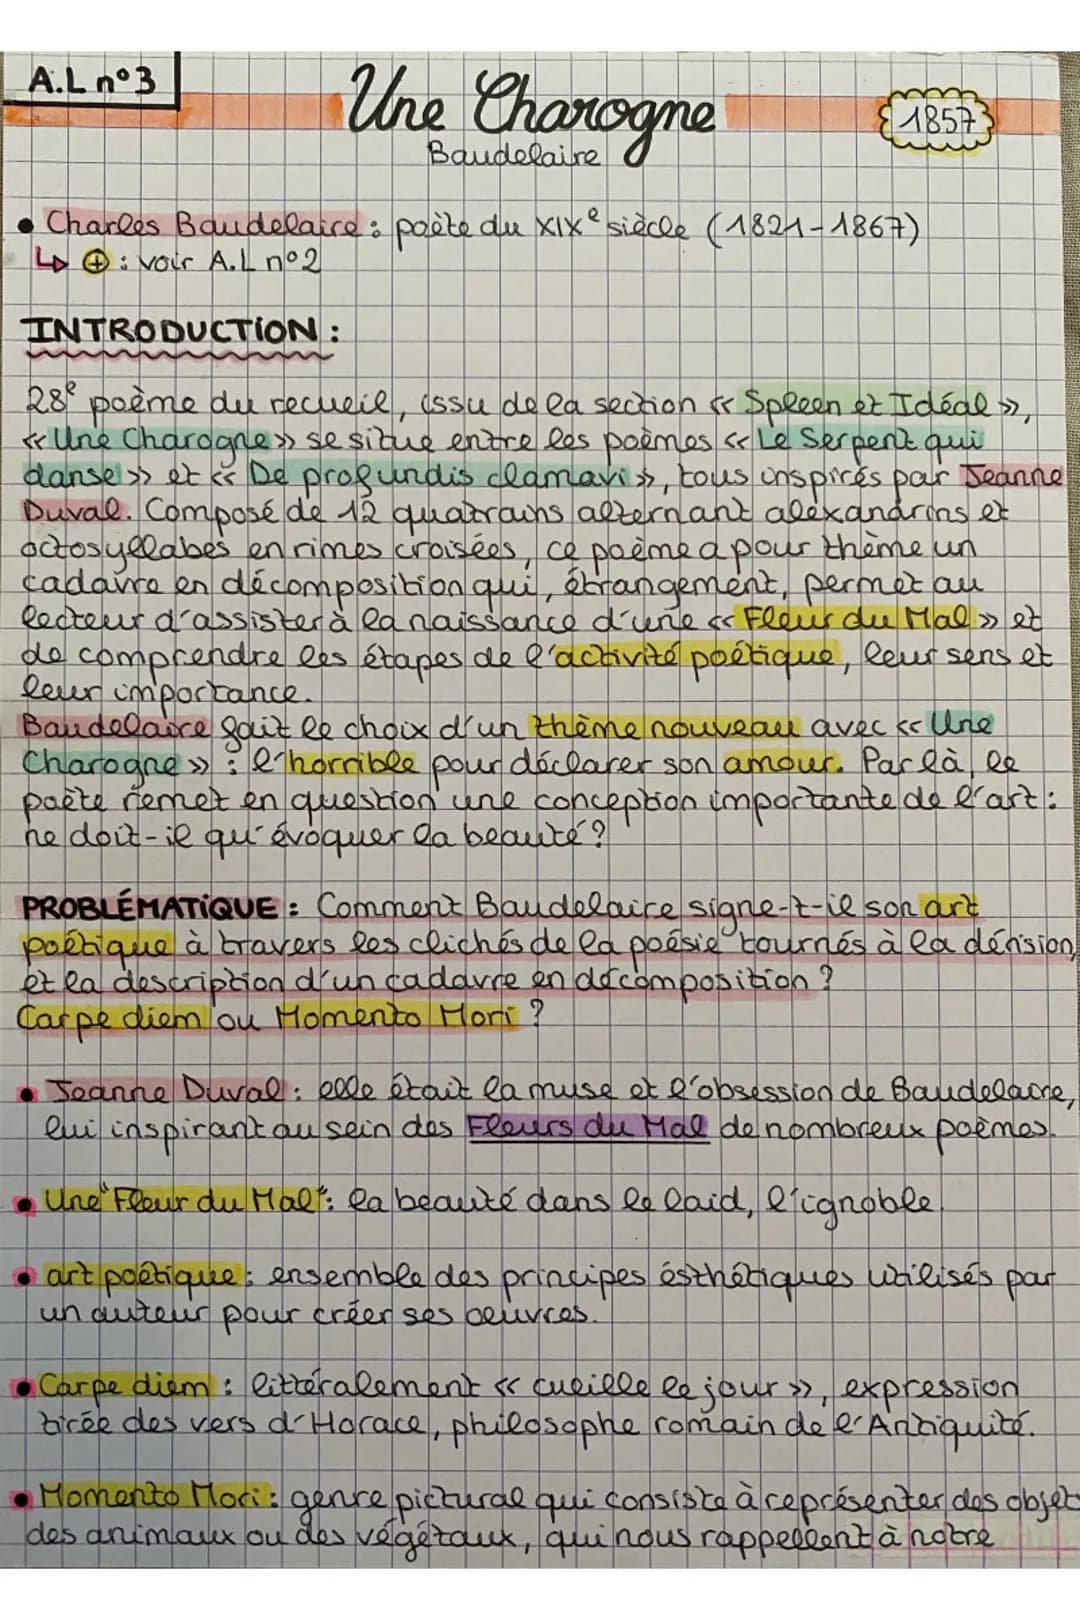 A.L n°3
Une Charogne
1857
Baudelaire
• Charles Baudelaire : poète du XIXe siècle (1821-1867)
↳ ⊕ : voir A.L n°2
INTRODUCTION :
28e poème du recueil, issu de la section « Spleen et Idéal »,
« Une Charogne » se situe entre les poèmes « Le Serpent qui
danse » et « De profundis clamavi », tous inspirés par Jeanne
Duval. Composé de 12 quatrains alternant alexandrins et
octosyllabes en rimes croisées, ce poème a pour thème un
cadavre en décomposition qui, étrangement, permet au
lecteur d'assister à la naissance d'une « Fleur du Mal » et
de comprendre les étapes de l'activité poétique, leur sens et
leur importance.
Baudelaire fait le choix d'un thème nouveau avec « Une
Charogne » : l'horrible pour déclarer son amour. Par là, le
poète remet en question une conception importante de l'art :
ne doit-il qu'évoquer la beauté ?
PROBLÉMATIQUE : Comment Baudelaire signe-t-il son art
poétique à travers les clichés de la poésie tournés à la dérision,
et la description d'un cadavre en décomposition ?
Carpe diem ou Momento Mori ?
• Jeanne Duval : elle était la muse et l'obsession de Baudelaire,
lui inspirant au sein des Fleurs du Mal de nombreux poèmes.
• Une "Fleur du Mal" : la beauté dans le laid, l'ignoble.
• art poétique : ensemble des principes ésthétiques utilisés par
un auteur pour créer ses œuvres.
• Carpe diem : littéralement « cueille le jour », expression
tirée des vers d'Horace, philosophe romain de l'Antiquité.
• Momento Mori : genre pictural qui consiste à représenter des objet
des animaux ou des végétaux, qui nous rappellent à notre